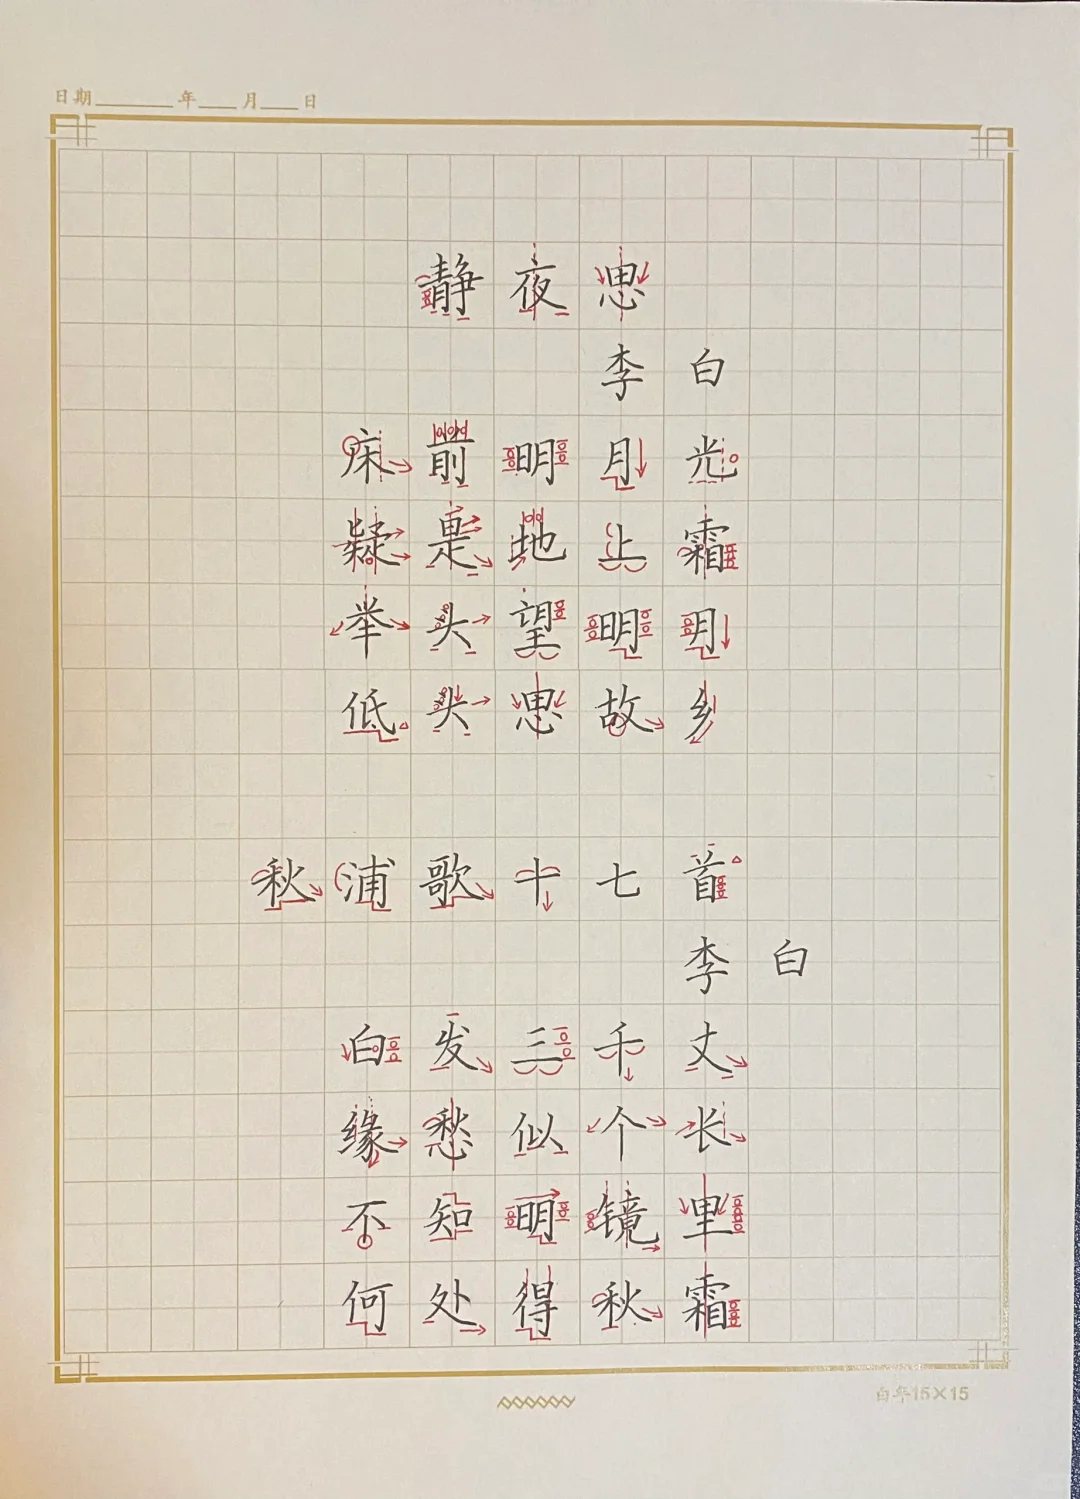 日期 年 月 日
静夜思
李白
床前明月光
疑是地上霜
举头望明月
低头思故乡
秋浦歌十七首
李白
白发三千丈
缘愁似个长
不知明镜里
何处得秋霜